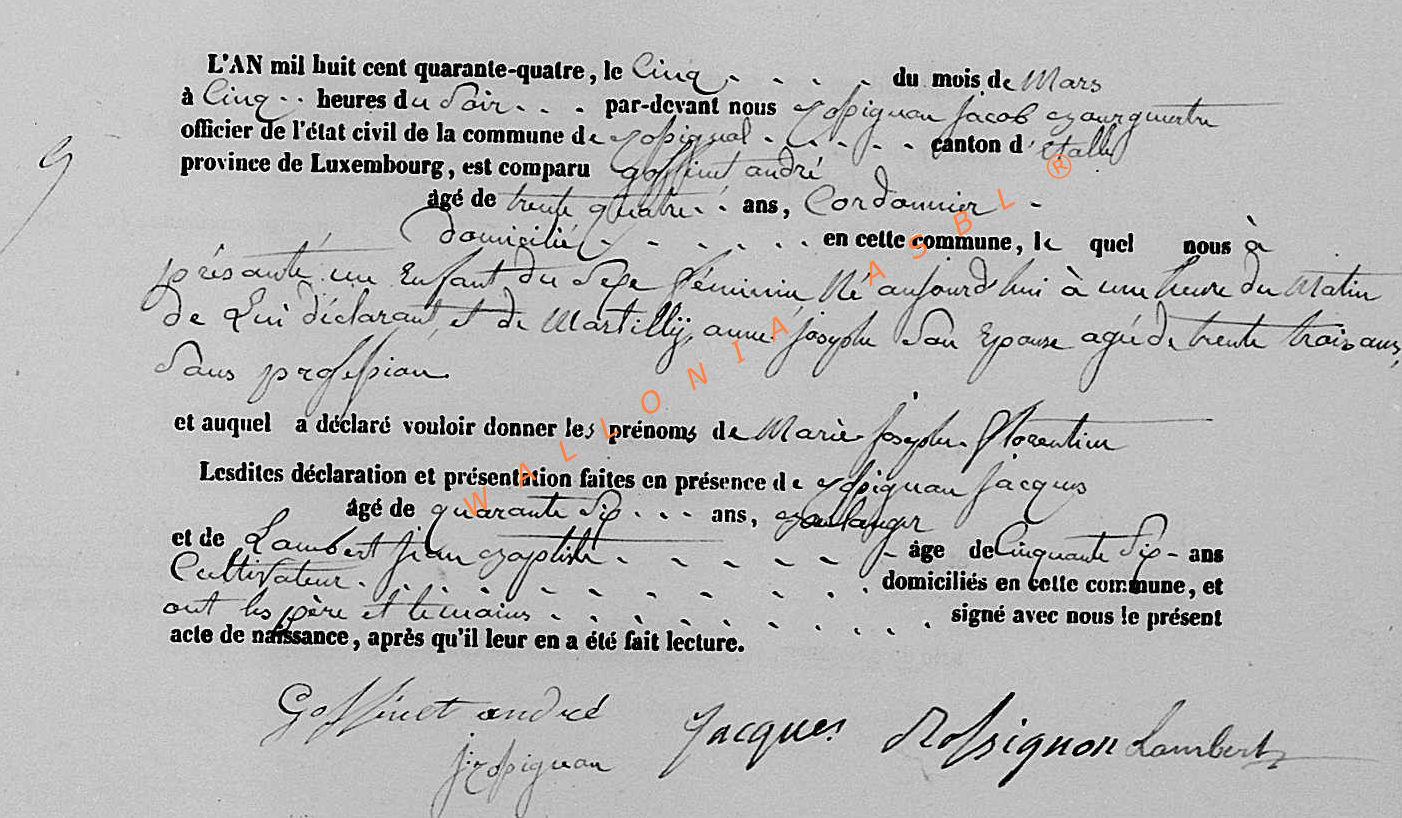 L'AN mil huit cent quarante-quatre, le Cinq du mois de Mars
à Cinq heures du Soir par-devant nous Rossignon Jacob Bourgmestre
officier de l'état civil de la commune de Rossignol canton d'Etalle
province de Luxembourg, est comparu Goffinet andré
âgé de trente quatre ans, Cordonnier
domicilié en cette commune, le quel nous à
présanté un Enfant du Sexe féminin, Né aujourd'hui à une heure du Matin
de Lui déclarant, et de Martilly, anne josephe Son Epouse agée de trente trois ans,
Sans profession.
et auquel a déclaré vouloir donner les prénoms de Marie Josephe Florentine
Lesdites déclaration et présentation faites en présence de Rossignon Jacques
âgé de quarante Six ans, Boulanger
et de Lambert jean Baptiste âge de Cinquante Six ans
Cultivateur domiciliés en cette commune, et
ont les père et témoins signé avec nous le présent
acte de naissance, après qu'il leur en a été fait lecture.
Goffinet andré
J Rossignon
Jacques Rossignon
Lambert
9
WALLONIA ASBL ®